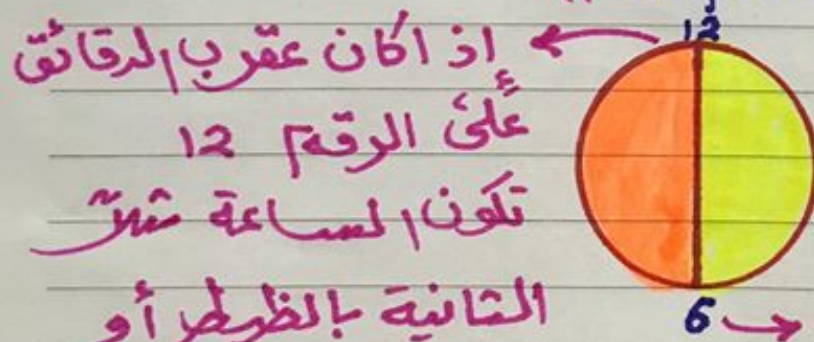 12
إذا كان عقرب الدقائق
على الرقم 12
تكون الساعة مثلاً
الثانية بالظبط أو
6